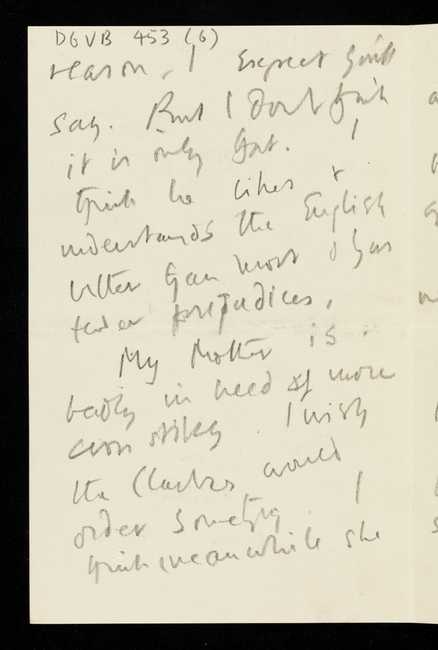 DGVB 453 (6)
reason, I expect you'll
say. But I don't think
it is only that. I
think he likes &
understands the English
better than most & has
fewer prejudices.
My Mother is
badly in need of more
cross stitch. I wish
the Clarkes would
order something. I
think meanwhile she